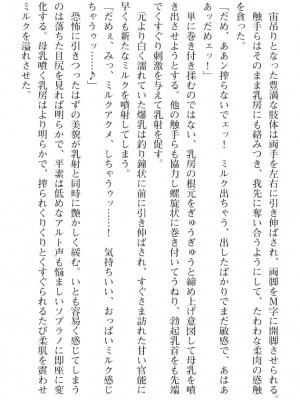 宙吊りとなった豊満な肢体は両手を左右に引き伸ばされ、両脚をM字に開脚させられる。
触手らはそのまま乳房にも絡みつき、我先に奪い合うようにして、たわわな柔肉の感触
を貪った。
「だめ、ああン搾らないでェッ！　ミルク出ちゃう、出したばかりでまだ敏感で、あはぁ
あッだめェッ！」
単に巻き付き揉むのではない、乳房の根元をぎゅうぎゅうと締め上げ意図して母乳を噴
き出させようとする。他の触手らも協力し螺旋状に巻き付いてうねり、勃起乳首をも先端
でくすぐり刺激を与えて射乳を促す。
元より白く濡れていた爆乳は釣り鐘状に前に引き伸ばされ、すぐさま訪れた甘い官能に
早くも新たなミルクを噴射してしまう。
「だめぇ、みっ、ミルクアクメ、しちゃうゥ……！　気持ちいい、おっぱいミルク感じ
ちゃうゥッ……♪」
恐怖に引きつったはずの美貌が乳射と同時に艶かしく緩む。いとも容易く感じてしまう
のは落ちた目尻を見れば明らかで、平素は低めなアルト声も悩ましいソプラノに即座に変
化する。母乳噴く乳房はより明らかで、搾られくりくりとくすぐられるたび柔肌を震わせ
ミルクを溢れさせた。